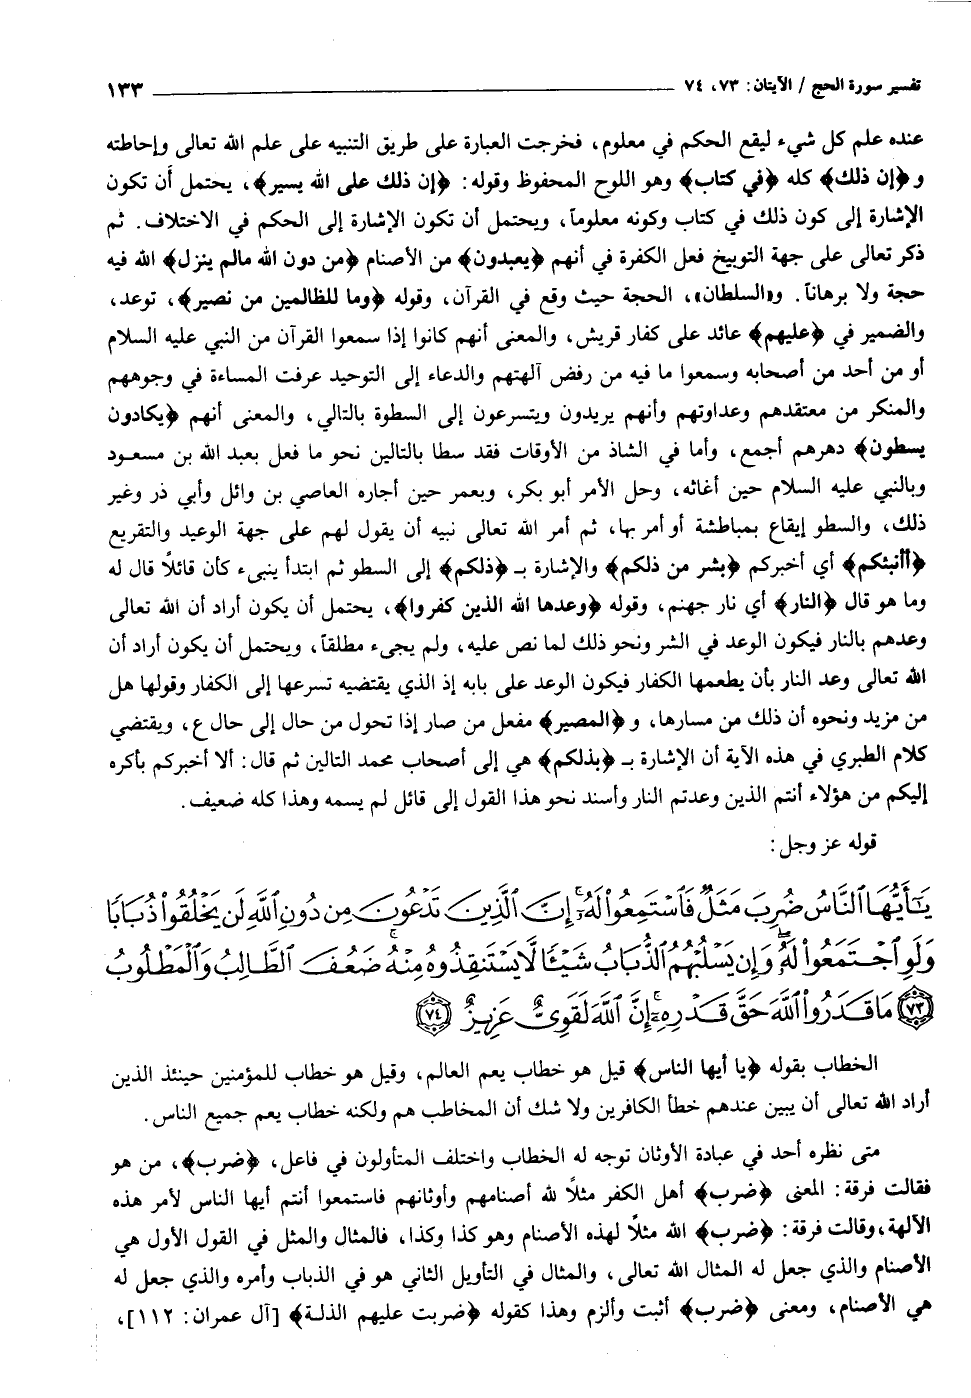 تفسير سورة الحج / الآيتان: ٧٣، ٧٤ ١٣٣
عنده علم كل شيء ليقع الحكم في معلوم، فخرجت العبارة على طريق التنبيه على علم الله تعالى وإحاطته
و﴿إن ذلك﴾ كله ﴿في كتاب﴾ وهو اللوح المحفوظ وقوله: ﴿إن ذلك على الله يسير﴾، يحتمل أن تكون
الإشارة إلى كون ذلك في كتاب وكونه معلوماً، ويحتمل أن تكون الإشارة إلى الحكم في الاختلاف. ثم
ذكر تعالى على جهة التوبيخ فعل الكفرة في أنهم ﴿يعبدون﴾ من الأصنام ﴿من دون الله مالم ينزل﴾ الله فيه
حجة ولا برهاناً. و«السلطان»، الحجة حيث وقع في القرآن، وقوله ﴿وما للظالمين من نصير﴾، توعد،
والضمير في ﴿عليهم﴾ عائد على كفار قريش، والمعنى أنهم كانوا إذا سمعوا القرآن من النبي عليه السلام
أو من أحد من أصحابه وسمعوا ما فيه من رفض آلهتهم والدعاء إلى التوحيد عرفت المساءة في وجوههم
والمنكر من معتقدهم وعداوتهم وأنهم يريدون ويتسرعون إلى السطوة بالتالي، والمعنى أنهم ﴿يكادون
يسطون﴾ دهرهم أجمع، وأما في الشاذ من الأوقات فقد سطا بالتالين نحو ما فعل بعبد الله بن مسعود
وبالنبي عليه السلام حين أغاثه، وحل الأمر أبو بكر، وبعمر حين أجاره العاصي بن وائل وأبي ذر وغير
ذلك، والسطو إيقاع بمباطشة أو أمر بها، ثم أمر الله تعالى نبيه أن يقول لهم على جهة الوعيد والتقريع
﴿أأنبئكم﴾ أي أخبركم ﴿بشر من ذلكم﴾ والإشارة بـ ﴿ذلكم﴾ إلى السطو ثم ابتدأ ينبىء كأن قائلاً قال له
وما هو قال ﴿النار﴾ أي نار جهنم، وقوله ﴿وعدها الله الذين كفروا﴾، يحتمل أن يكون أراد أن الله تعالى
وعدهم بالنار فيكون الوعد في الشر ونحو ذلك لما نص عليه، ولم يجىء مطلقاً، ويحتمل أن يكون أراد أن
الله تعالى وعد النار بأن يطعمها الكفار فيكون الوعد على بابه إذ الذي يقتضيه تسرعها إلى الكفار وقولها هل
من مزيد ونحوه أن ذلك من مسارها، و﴿المصير﴾ مفعل من صار إذا تحول من حال إلى حال ع، ويقتضي
كلام الطبري في هذه الآية أن الإشارة بـ ﴿بذلكم﴾ هي إلى أصحاب محمد التالين ثم قال: ألا أخبركم بأكره
إليكم من هؤلاء أنتم الذين وعدتم النار وأسند نحو هذا القول إلى قائل لم يسمه وهذا كله ضعيف.
قوله عز وجل:
يَٰٓأَيُّهَا ٱلنَّاسُ ضُرِبَ مَثَلٌ فَٱسْتَمِعُوا۟ لَهُۥٓ ۚ إِنَّ ٱلَّذِينَ تَدْعُونَ مِن دُونِ ٱللَّهِ لَن يَخْلُقُوا۟ ذُبَابًا
وَلَوِ ٱجْتَمَعُوا۟ لَهُۥ ۖ وَإِن يَسْلُبْهُمُ ٱلذُّبَابُ شَيْـًٔا لَّا يَسْتَنقِذُوهُ مِنْهُ ۚ ضَعُفَ ٱلطَّالِبُ وَٱلْمَطْلُوبُ
﴿٧٣﴾ مَا قَدَرُوا۟ ٱللَّهَ حَقَّ قَدْرِهِۦٓ ۗ إِنَّ ٱللَّهَ لَقَوِىٌّ عَزِيزٌ ﴿٧٤﴾
الخطاب بقوله ﴿يا أيها الناس﴾ قيل هو خطاب يعم العالم، وقيل هو خطاب للمؤمنين حينئذ الذين
أراد الله تعالى أن يبين عندهم خطأ الكافرين ولا شك أن المخاطب هم ولكنه خطاب يعم جميع الناس.
متى نظره أحد في عبادة الأوثان توجه له الخطاب واختلف المتأولون في فاعل، ﴿ضرب﴾، من هو
فقالت فرقة: المعنى ﴿ضرب﴾ أهل الكفر مثلاً لله أصنامهم وأوثانهم فاستمعوا أنتم أيها الناس لأمر هذه
الآلهة، وقالت فرقة: ﴿ضرب﴾ الله مثلاً لهذه الأصنام وهو كذا وكذا، فالمثال والمثل في القول الأول هي
الأصنام والذي جعل له المثال الله تعالى، والمثال في التأويل الثاني هو في الذباب وأمره والذي جعل له
هي الأصنام، ومعنى ﴿ضرب﴾ أثبت وألزم وهذا كقوله ﴿ضربت عليهم الذلة﴾ [آل عمران: ١١٢]،